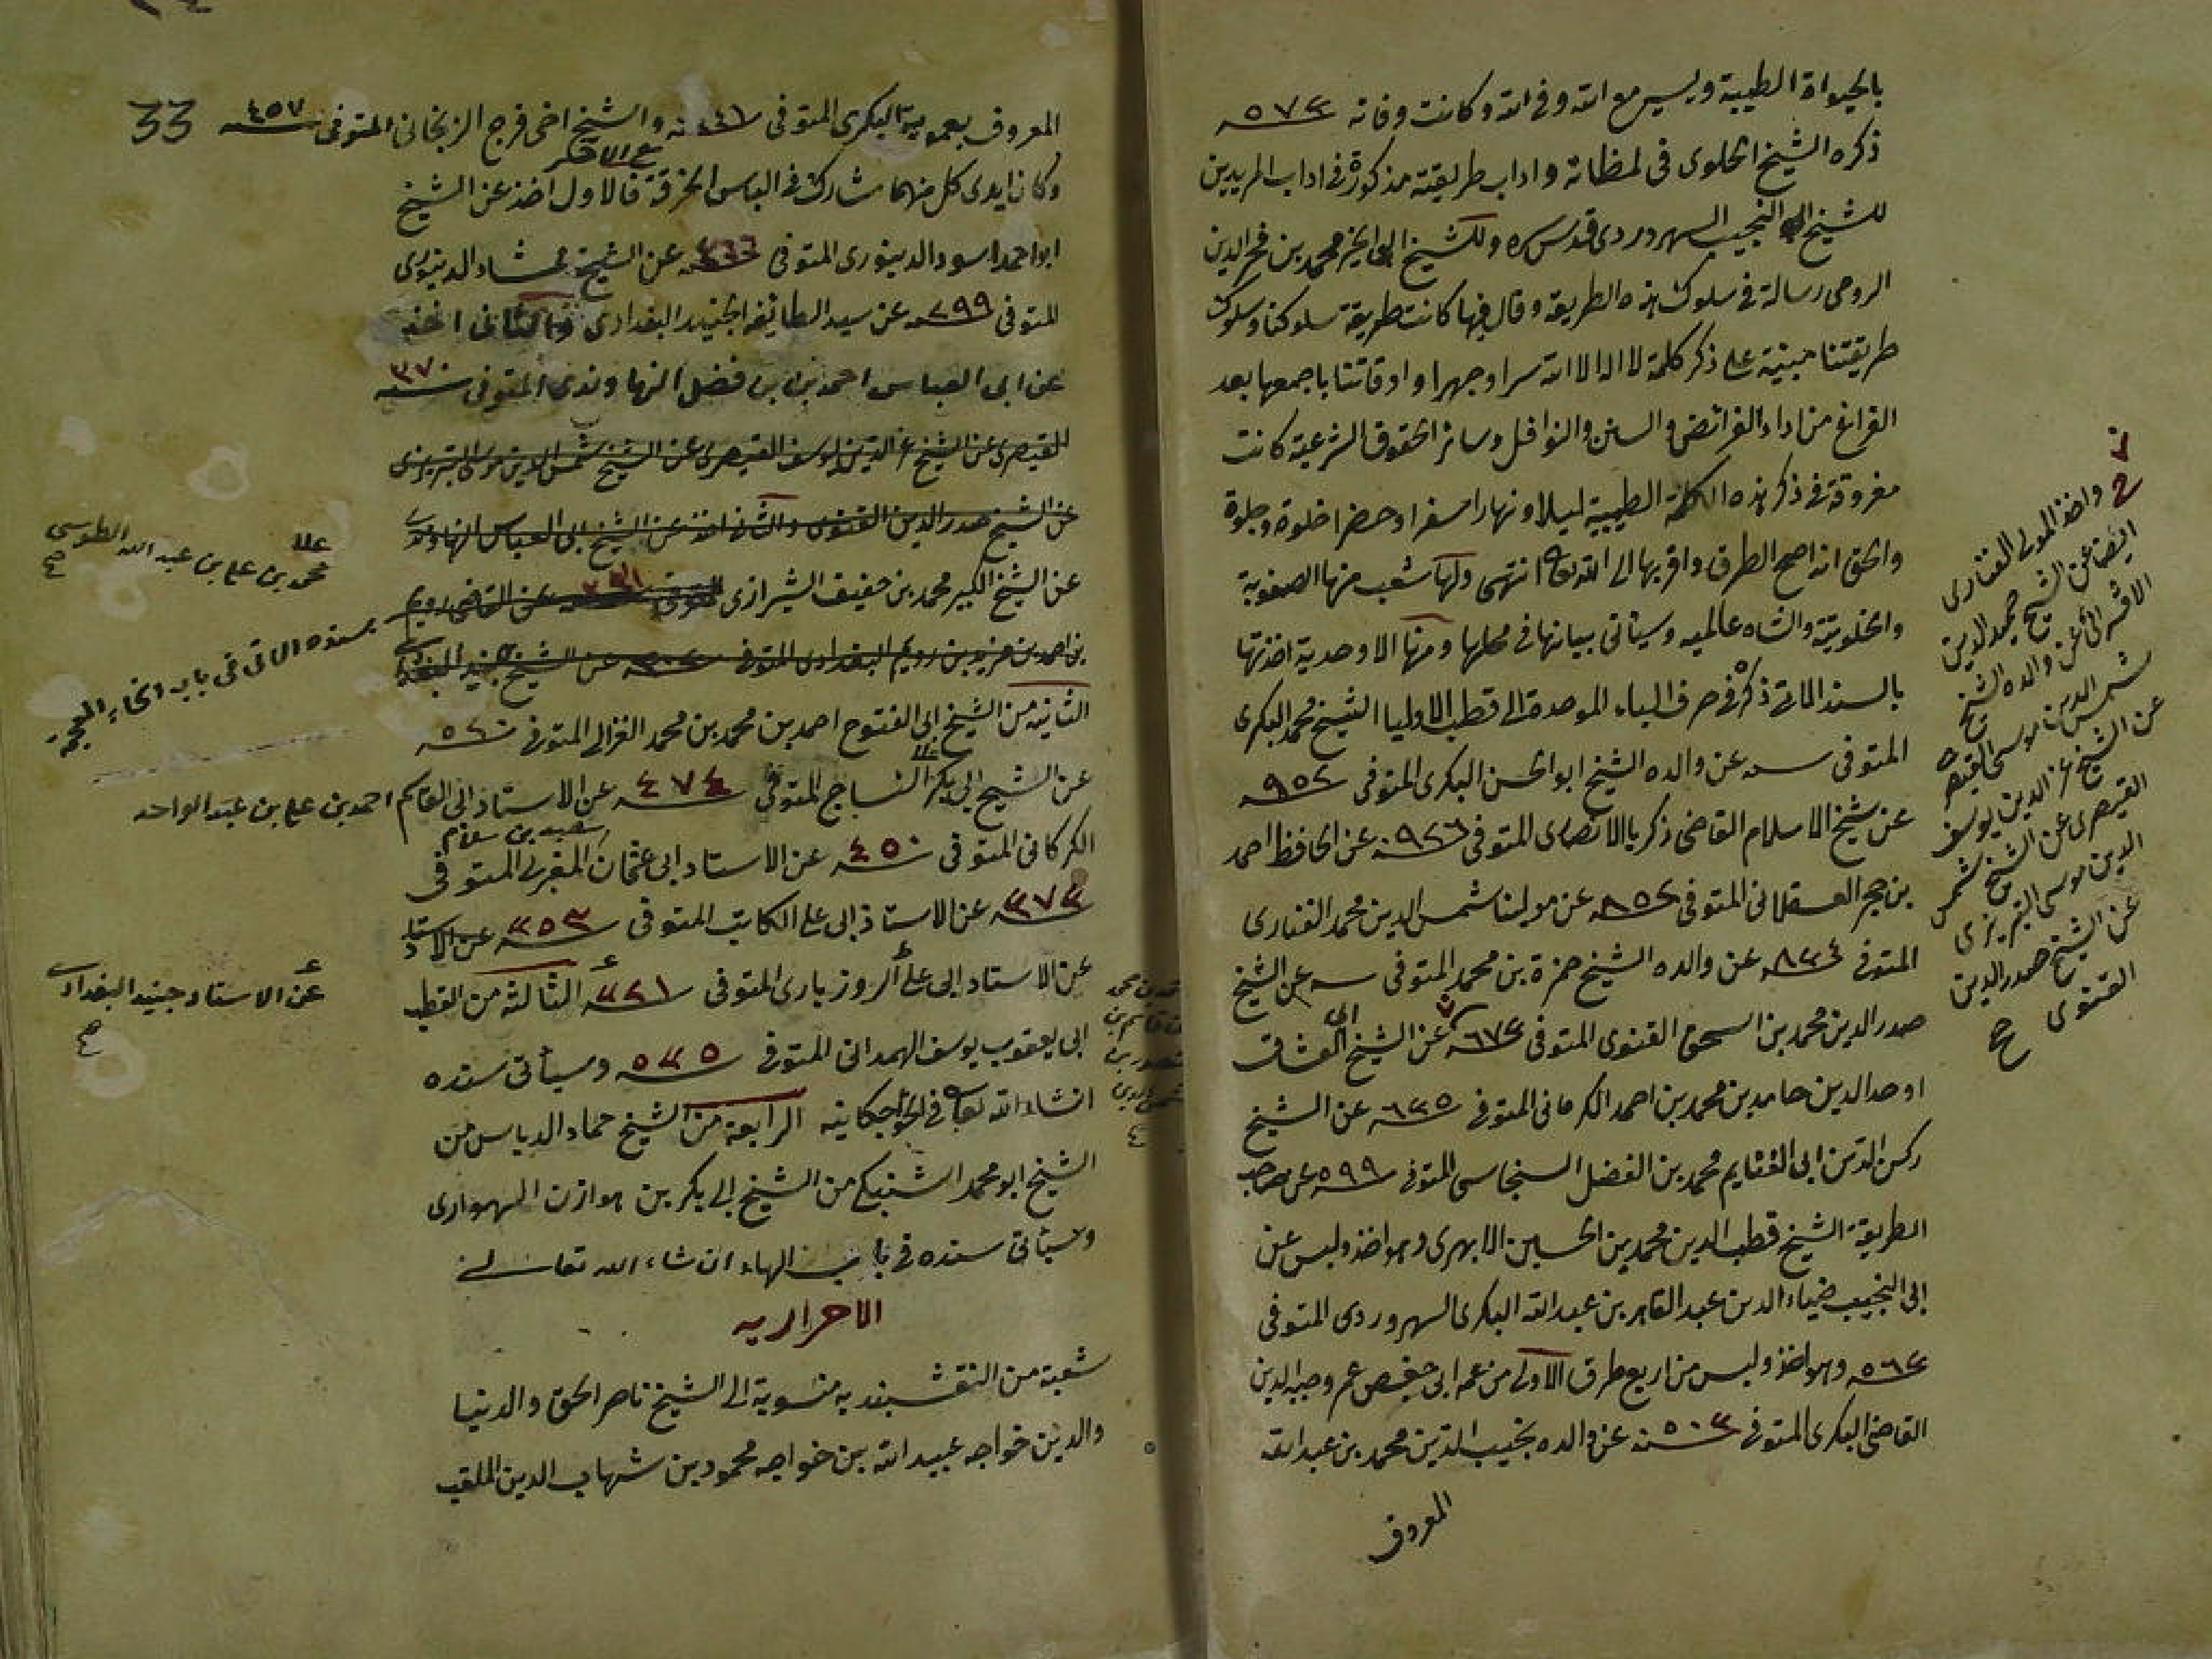 بالحيواة الطيبية ويسير مع الله وفى الله وكانت وفاته سنه ٥٧٣
ذكره الشيخ الخلوى فى لمظاته واداب طريقته مذكورة فى اداب المريدين
للشيخ النجيب السهروردى قدس سره وللشيخ ابى الخير محمد بن فخر الدين
الرومى رسالة فى سلوك هذه الطريقه وقال فيها كانت طريقة سلوكنا وسلوك
طريقتنا مبنية على ذكر كلمة لا اله الا الله سرا وجهرا واوقاتنا باجمعها بعد
الفراغ من اداء الفرائض والسنن والنوافل وسائر الحقوق الشرعية كانت
مغروقة فى ذكر هذه الكلمة الطيبية ليلا ونهارا سفرا وحضرا خلوة وجلوة
والحق انه اصح الطرق واقربها الى الله تعا انتهى ولها شعب منها الصفوية
والخلوتية والشاه عالميه وسيئاتى بيانها فى محلها ومنها الاوحدية اخذتها
بالسند الماتى ذكره فى حرف الباء الموحدة الى قطب الاوليا الشيخ محمد البكرى
المتوفى سنه عن والده الشيخ ابو الحسن البكرى المتوفى سنه ٩٥٢
عن شيخ الاسلام القاضى زكريا الانصارى المتوفى سنه ٩٢٦ عن الحافظ احمد
بن حجر العسقلانى المتوفى سنه ٨٥٢ عن مولينا شمس الدين محمد الفنارى
المتوفى سنه ٨٣٤ عن والده الشيخ حمزة بن محمد المتوفى سنه عن الشيخ
صدر الدين محمد بن اسحق القنوى المتوفى سنه ٦٧٣ عن الشيخ ابى العشاق
اوحد الدين حامد بن محمد بن احمد الكرمانى المتوفى سنه ٦٣٥ عن الشيخ
ركن الدين ابى الغنايم محمد بن الفضل السنجاسى المتوفى سنه ٥٩٩ عن صاحب
الطريقة الشيخ قطب الدين محمد بن الحسين الابهرى وهو اخذ ولبس عن
ابى النجيب ضياء الدين عبد القاهر بن عبد الله البكرى السهروردى المتوفى
سنه ٥٦٣ وهو اخذ ولبس من اربع طرق الاولى من عمه ابى حفص عمر وجيه الدين
القاضى البكرى المتوفى سنه ٥٠٣ عن والده نجيب الدين محمد بن عبد الله
المعروف
واخذ المولى الفنارى
ايضا عن الشيخ حميد الدين
الاقسرائى عن والده الشيخ
شمس الدين موسى القيصرى
عن الشيخ عز الدين يوسف
القيصرى عن الشيخ شمس
الدين موسى التبريزى
عن الشيخ صدر الدين
القنوى صح
33
المعروف بعمويه البكرى المتوفى سنه ٤٤٦ والشيخ اخى فرج الزنجانى المتوفى سنه ٤٥٧
مع الاخر
وكان ايدى كل منهما شارك فى الباس الخرقة فالاول اخذ عن الشيخ
ابو احمد اسود الدينورى المتوفى سنه ٣٦٦ عن الشيخ ممشاد الدينورى
المتوفى سنه ٢٩٩ عن سيد الطائفه الجنيد البغدادى والثانى اخذ
عن ابى العباس احمد بن فضل النهاوندى المتوفى سنه ٣٧٠
القيصرى عن الشيخ عز الدين يوسف القيصرى عن الشيخ شمس الدين موسى التبريزى
عن الشيخ صدر الدين القنوى والثانى اخذ عن الشيخ ابى العباس النهاوندى
عن الشيخ الكبير محمد بن حفيف الشيرازى المتوفى سنه عن القاضى رويم
بن احمد بن يزيد بن رويم البغدادى المتوفى سنه عن الشيخ جنيد البغدادى
بسنده الاتى فى باب الخاء المعجمه
الثانية من الشيخ ابى الفتوح احمد بن محمد بن محمد الغزالى المتوفى سنه ٥٢٠
عن الشيخ ابى بكر النساج المتوفى سنه ٤٧٤ عن الاستاذ ابى القاسم احمد بن على بن عبد الواحد
الكركانى المتوفى سنه ٤٥٠ عن الاستاد ابى عثمان سعيد بن سلام المغربى المتوفى
سنه ٣٧٣ عن الاستاذ ابى على الكاتب المتوفى سنه ٣٥٣ عن الاستاد
عن الاستاد ابى على الروزبارى المتوفى سنه ٣٢١ الثالثة من القطب
ابى يعقوب يوسف الهمدانى المتوفى سنه ٥٣٥ وسيأتى سنده
انشاء الله تعا فى الخواجكانيه الرابعة من الشيخ حماد الدباس من
الشيخ ابو محمد الشنبكى من الشيخ ابى بكر بن هوازن الهوارى
وسيئاتى سنده فى باب الهاء ان شاء الله تعالى
الاحراريه
شعبة من النقشبنديه منسوبة الى الشيخ ناصر الحق والدنيا
والدين خواجه عبيد الله بن خواجه محمود بن شهاب الدين الملقب
محمد بن على بن عبد الله الطوسى
صح
عن الاستاد جنيد البغدادى
صح